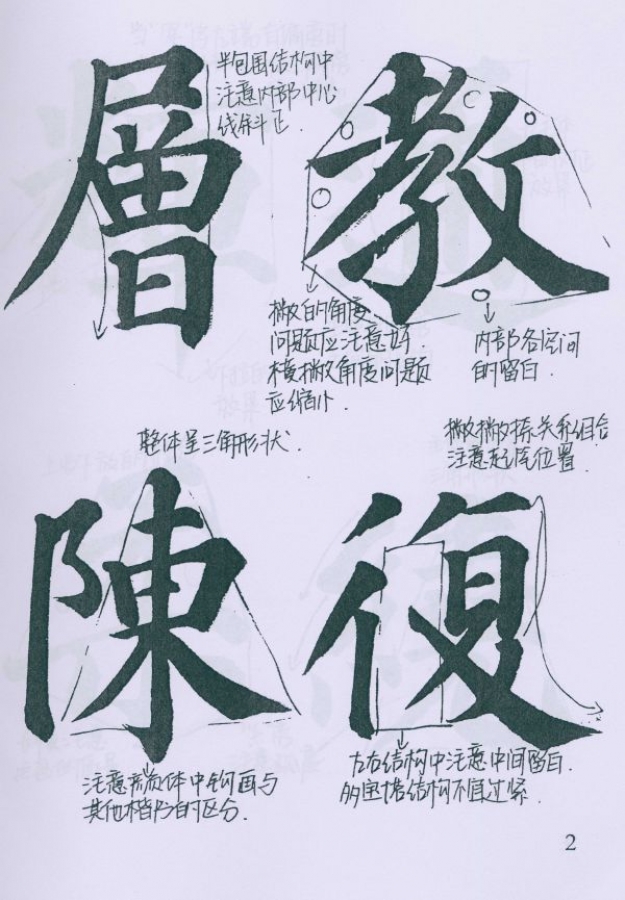 層
半包围结构中
注意内部中心
线斜正.
教
撇的角度
问题应注意好.
横撇角度问题
应缩小.
内部各空间
的留白.
整体呈三角形状.
撇撇捺关系组合
注意起笔位置.
陳
復
注意颜体中钩画与
其他楷书的区分.
左右结构中注意中间留白.
多宝塔结构不宜过紧.
2